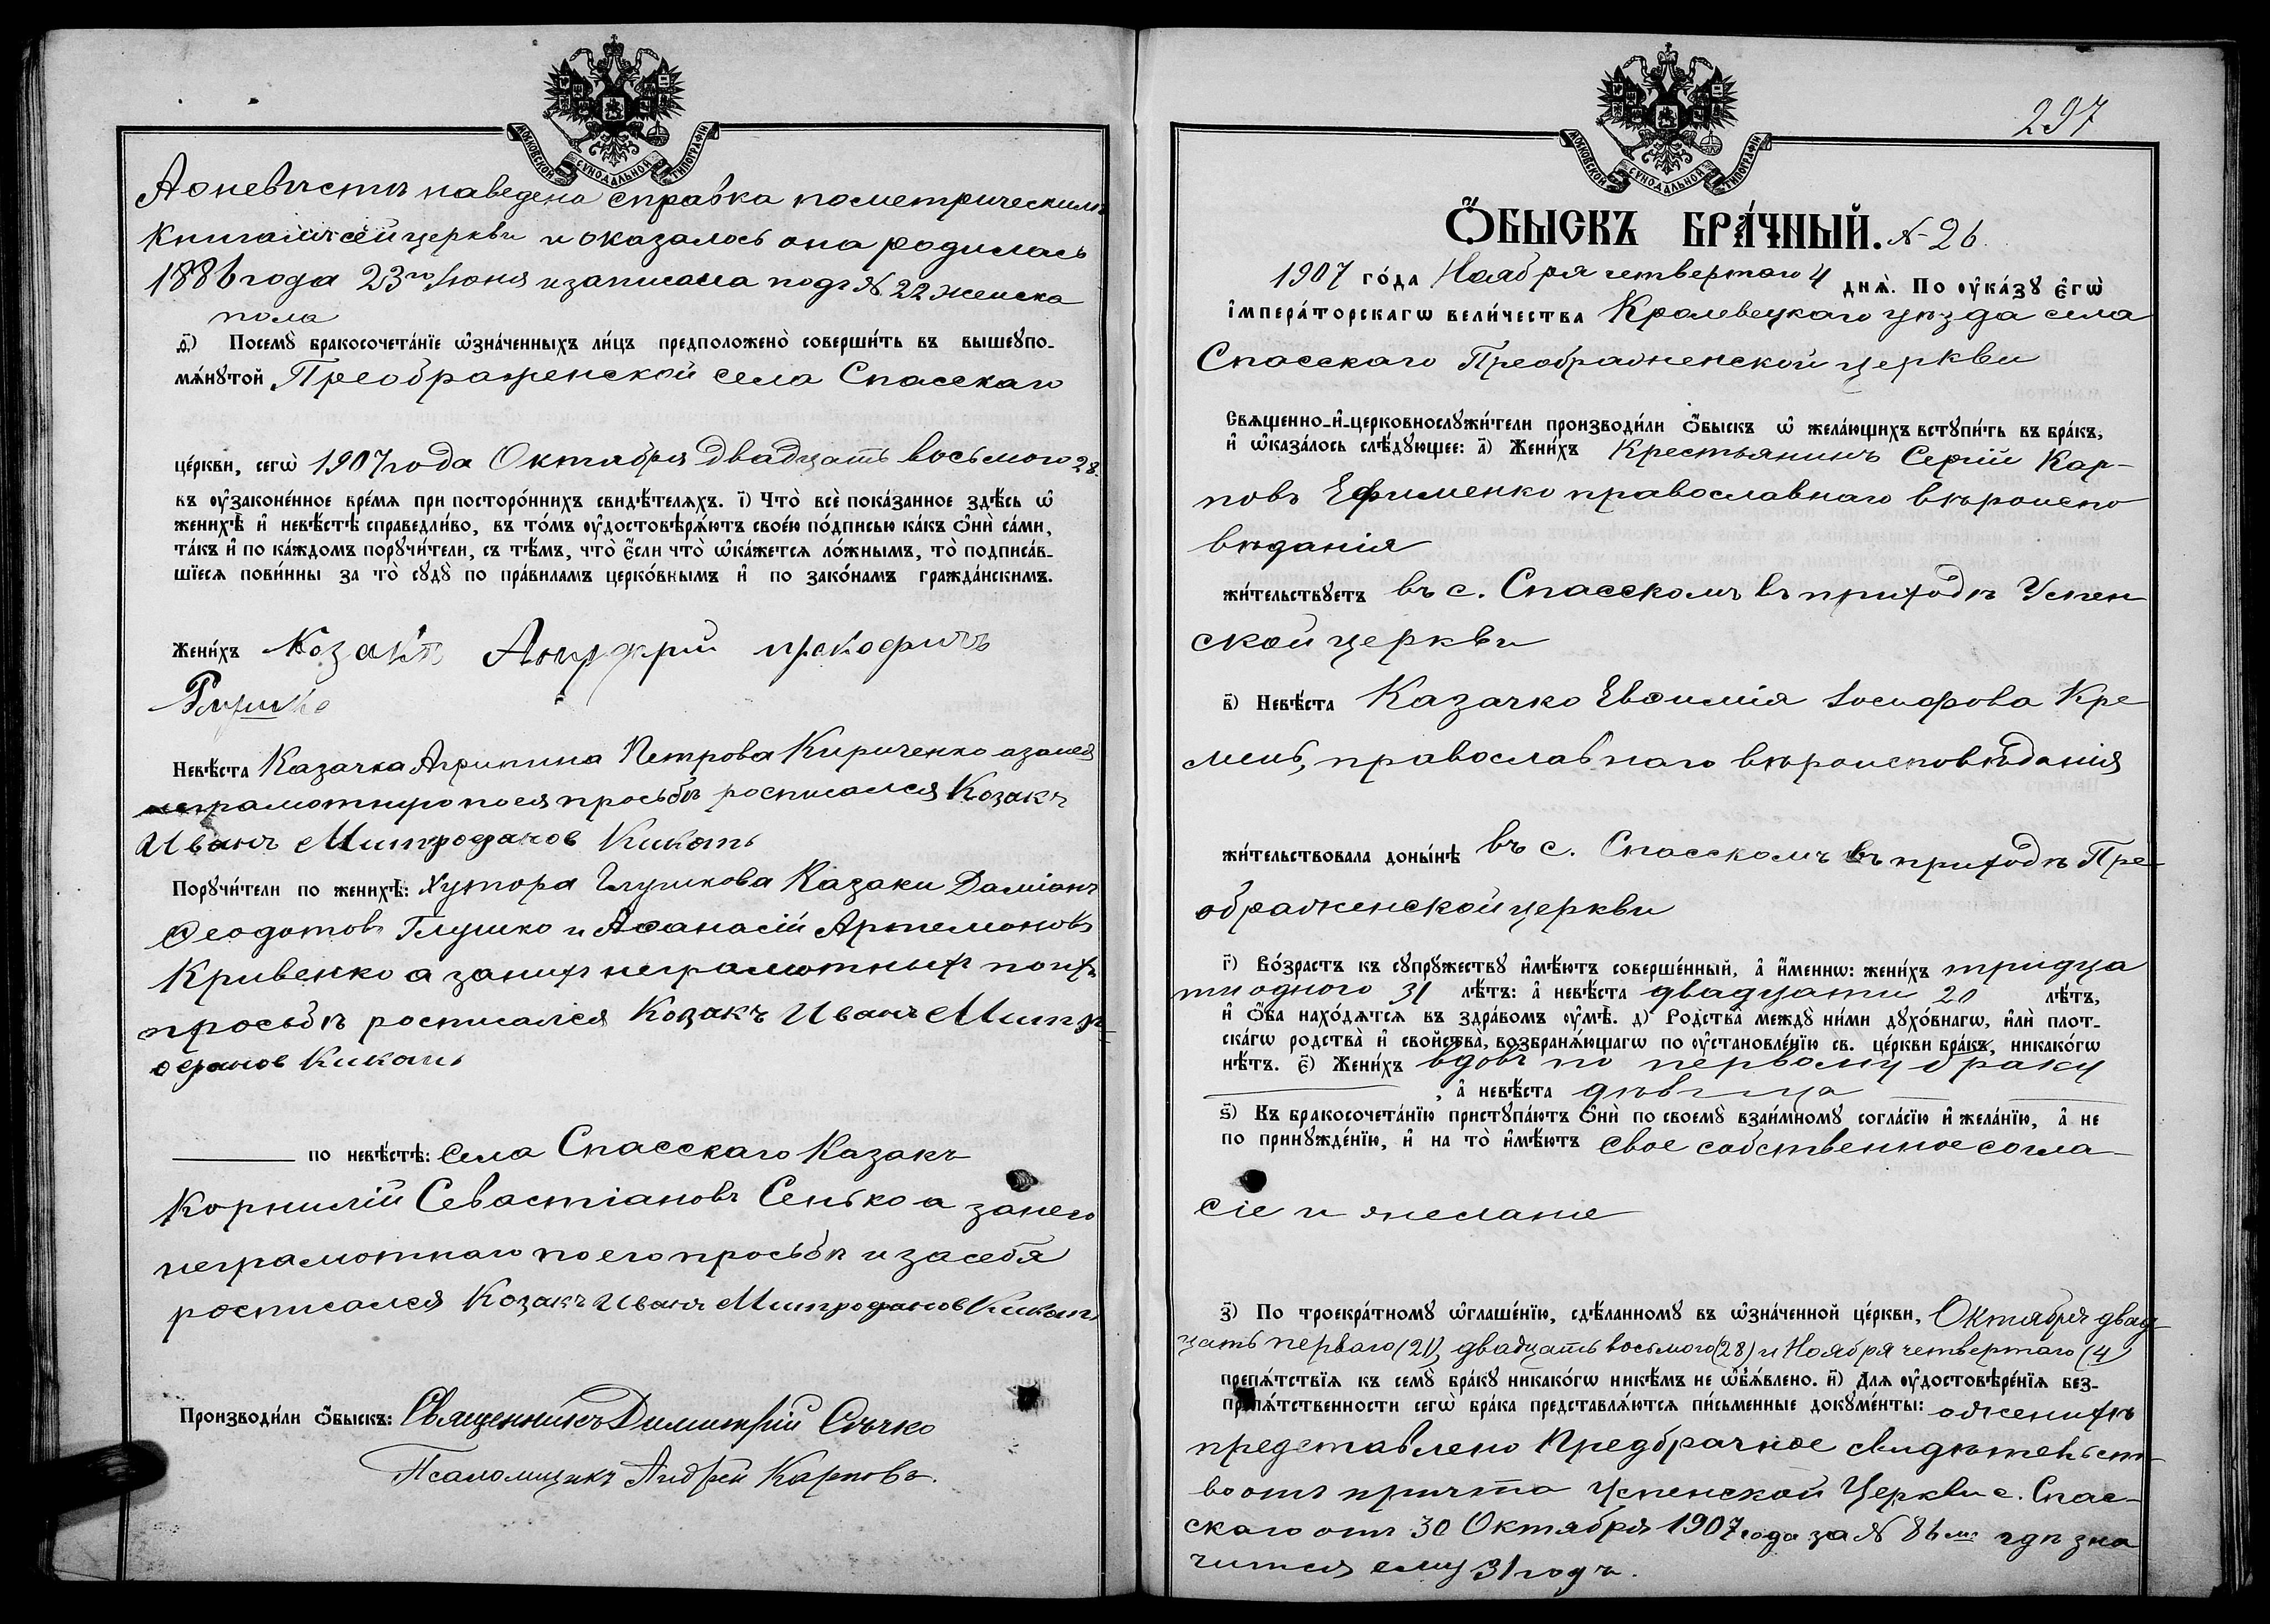 МОСКОВСКОЙ СѴНОДАЛЬНОЙ ТИПОГРАФІИ
А о невѣстѣ наведена справка по метрическимъ
книгамъ сей церкви и оказалось она родилась
1886 года 23го Іюня и записана подъ № 22 женска
пола
д҃і) Посемꙋ̀ бракосочета́нїе ѡ҆зна́ченныхъ ли́цъ предположено̀ соверши́ть въ вышеꙋпо-
мѧ́нꙋтой Преображенской села Спасскаго
це́ркви, сегѡ̀ 1907 года Октября двадцать восьмого 28.
въ ᲂу҆законе́нное вре́мѧ при посторо́ннихъ свидѣ́телѧхъ. і҃) Что̀ всѐ пока́занное здѣ́сь ѡ҆
женихѣ̀ и҆ невѣ́стѣ справедли́во, въ то́мъ ᲂу҆достовѣрѧ́ютъ свое́ю по́дписью ка́къ ѻ҆нѝ са́ми,
та́къ и҆ по ка́ждомъ порꙋчи́тели, съ тѣ́мъ, что̀ є҆́сли что̀ ѡ҆ка́жетсѧ ло́жнымъ, то̀ подписа́в-
шїесѧ пови́нны за то̀ сꙋдꙋ̀ по пра́виламъ церко́внымъ и҆ по зако́намъ гражда́нскимъ.
Жени́хъ Козакъ Андрей прокофичъ
Глушко
Невѣ́ста Казачка Агрипина Петрова Кириченко а за нея
неграмотную по ея просьбѣ росписался Козакъ
Иванъ Митрофанов Кикоть
Порꙋчи́тели по женихѣ̀: Хутора Глушкова Казаки Даміанъ
Ѳеодотовъ Глушко и Аѳанасій Артемоновъ
Кривенко а за нихъ неграмотныхъ по ихъ
просьбѣ росписался Козакъ Иванъ Митр-
офанов Кикоть
по невѣ́стѣ: Села Спасскаго Казакъ
Корнилій Севастіановъ Сенько а за него
неграмотнаго по его просьбѣ и за себя
росписался Козакъ Иванъ Митрофанов Кикоть
Производи́ли ѻ҆́быскъ: Священникъ Димитрій Сѣчко
Псаломщикъ Андрей Карповъ.
297
МОСКОВСКОЙ СѴНОДАЛЬНОЙ ТИПОГРАФІИ
Ѻ҆́БЫСКЪ БРА́ЧНЫЙ. № 26.
1907 го́да Ноября четвертаго 4 днѧ̀. По ᲂу҆ка́зꙋ є҆гѡ̀
і҆мпера́торскагѡ вели́чества Кролевецкаго уѣзда села
Спасскаго Преображенской церкви
Свѧщенно-и҆-церковнослꙋжи́тели производи́ли ѻ҆́быскъ ѡ҆ жела́ющихъ встꙋпи́ть въ бра́къ,
и҆ ѡ҆каза́лось слѣ́дꙋющее: а҃) Жени́хъ Крестьянинъ Сергій Кар-
повъ Ефименко православнаго вѣроиспо
вѣданія
жи́тельствꙋетъ въ с. Спасскомъ въ приходѣ Успен
ской церкви
в҃) Невѣ́ста Казачко Евѳимія Іосифова Кре
мень, православнаго вѣроисповѣданія
жи́тельствовала доны́нѣ въ с. Спасскомъ въ приходѣ Пре-
ображенской церкви
г҃) Во́зрастъ къ сꙋпрꙋ́жествꙋ и҆мѣ́ютъ соверше́нный, а҆ и҆́менно: жени́хъ тридца
ти одного 31 лѣ́тъ: а҆ невѣ́ста двадцати 20 лѣ́тъ,
и҆ ѻ҆́ба нахо́дѧтсѧ въ здра́вомъ ᲂу҆мѣ̀. д҃) Родства̀ междꙋ̀ ни́ми дꙋхо́внагѡ, и҆лѝ плот-
ска́гѡ родства̀ и҆ сво́йства, возбранѧ́ющагѡ по ᲂу҆становле́нїю св. це́ркви бра́къ, никако́гѡ
нѣ́тъ. є҃) Жени́хъ вдовъ по первому браку
, а҆ невѣ́ста дѣвица
ѕ҃) Къ бракосочета́нїю пристꙋпа́ютъ ѻ҆нѝ по своемꙋ̀ взаи́мномꙋ согла́сїю и҆ жела́нїю, а҆ не
по принꙋжде́нїю, и҆ на то̀ и҆мѣ́ютъ свое собственное согла-
сіе и желаніе
з҃) По троекра́тномꙋ ѡ҆глаше́нїю, сдѣ́ланномꙋ въ ѡ҆зна́ченной це́ркви, Октября двад-
цать перваго (21), двадцать восьмого (28) и Ноября четвертаго (4)
препѧ́тствїѧ къ семꙋ̀ бра́кꙋ никако́гѡ никѣ́мъ не ѡ҆б̾ѧ́влено. и҃) Длѧ ᲂу҆достовѣре́нїѧ без-
препѧ́тственности сегѡ̀ бра́ка представлѧ́ютсѧ пи́сьменные докꙋме́нты: о женихѣ
представлено Предбрачное свидѣтельст-
во отъ причта Успенской Церкви с. Спас-
скаго отъ 30 Октября 1907 года за № 86мъ гдѣ зна
чится ему 31 годъ.